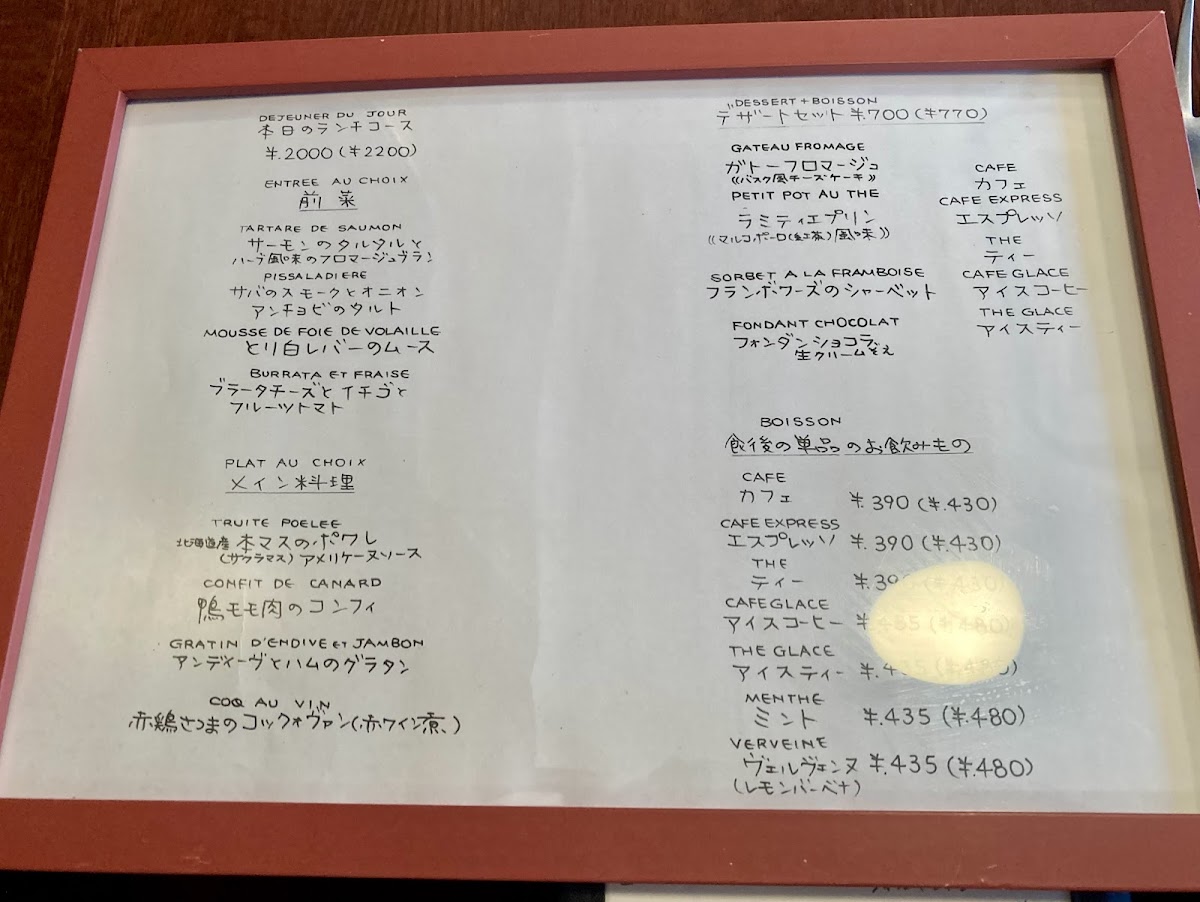 DEJEUNER DU JOUR
本日のランチコース
¥.2000 (¥2200)
ENTREE AU CHOIX
前菜
TARTARE DE SAUMON
サーモンのタルタルと
ハーブ風味のフロマージュブラン
PISSALADIERE
サバのスモークとオニオン
アンチョビのタルト
MOUSSE DE FOIE DE VOLAILLE
とり白レバーのムース
BURRATA ET FRAISE
ブラータチーズとイチゴと
フルーツトマト
PLAT AU CHOIX
メイン料理
TRUITE POELEE
北海道産 本マスのポワレ
(サクラマス) アメリケーヌソース
CONFIT DE CANARD
鴨モモ肉のコンフィ
GRATIN D'ENDIVE ET JAMBON
アンディーヴとハムのグラタン
COQ AU VIN
赤鶏さつまのコックオヴァン(赤ワイン煮)
DESSERT + BOISSON
デザートセット ¥.700 (¥770)
GATEAU FROMAGE
ガトーフロマージュ
《バスク風チーズケーキ》
PETIT POT AU THE
ラミティエプリン
《マルコポーロ(紅茶)風味》
SORBET A LA FRAMBOISE
フランボワーズのシャーベット
FONDANT CHOCOLAT
フォンダンショコラ、
生クリームそえ
CAFE
カフェ
CAFE EXPRESS
エスプレッソ
THE
ティー
CAFE GLACE
アイスコーヒー
THE GLACE
アイスティー
BOISSON
食後の単品のお飲みもの
CAFE
カフェ ¥.390 (¥.430)
CAFE EXPRESS
エスプレッソ ¥.390 (¥.430)
THE
ティー ¥.390 (¥.430)
CAFE GLACE
アイスコーヒー (¥.480)
THE GLACE
アイスティー ¥.435 (¥.480)
MENTHE
ミント ¥.435 (¥.480)
VERVEINE
ヴェルヴェンヌ ¥.435 (¥.480)
(レモンバーベナ)